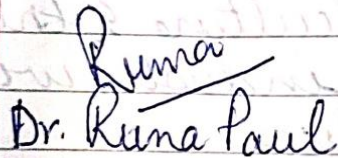 Ruma
Dr. Runa Paul